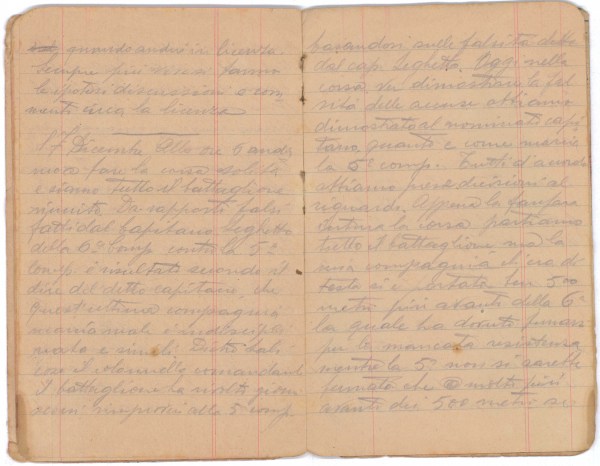 quando andrò in licenza.
Sempre più rosea fanno
le ipotesi discussioni e com-
menti circa la licenza
17 Dicembre Alle ore 6 andia
mo a fare la corsa solita
e siamo tutto il battaglione
riunito. Da rapporti falsi
fatti dal Capitano Seghetto
della 6ª Comp contro la 5ª
Comp è risultato secondo il
dire del detto capitano, che
quest'ultima compagnia
marcia male è indiscipli
nata e simili.
il colonnello comandante
il battaglione ha molti giorni
rimproveri alla 5ª comp.
basandosi sulle falsità dette
dal cap. Seghetto. Oggi nella
corsa per dimostrare la fal
sità delle accuse abbiamo
dimostrato al nominato capi
tano quanto e come marcia
la 5ª comp. Tutti d'accordo
abbiamo preso decisioni al
riguardo. Appena la fanfara
la corsa partiamo
tutto il battaglione ma la
mia compagnia ch'era di
testa si è portata ben 500
metri più avanti della 6ª
la quale ha dovuto
per la mancata resistenza
mentre la 5ª non si sarebbe
fermata che molto più
avanti dei 500 metri se